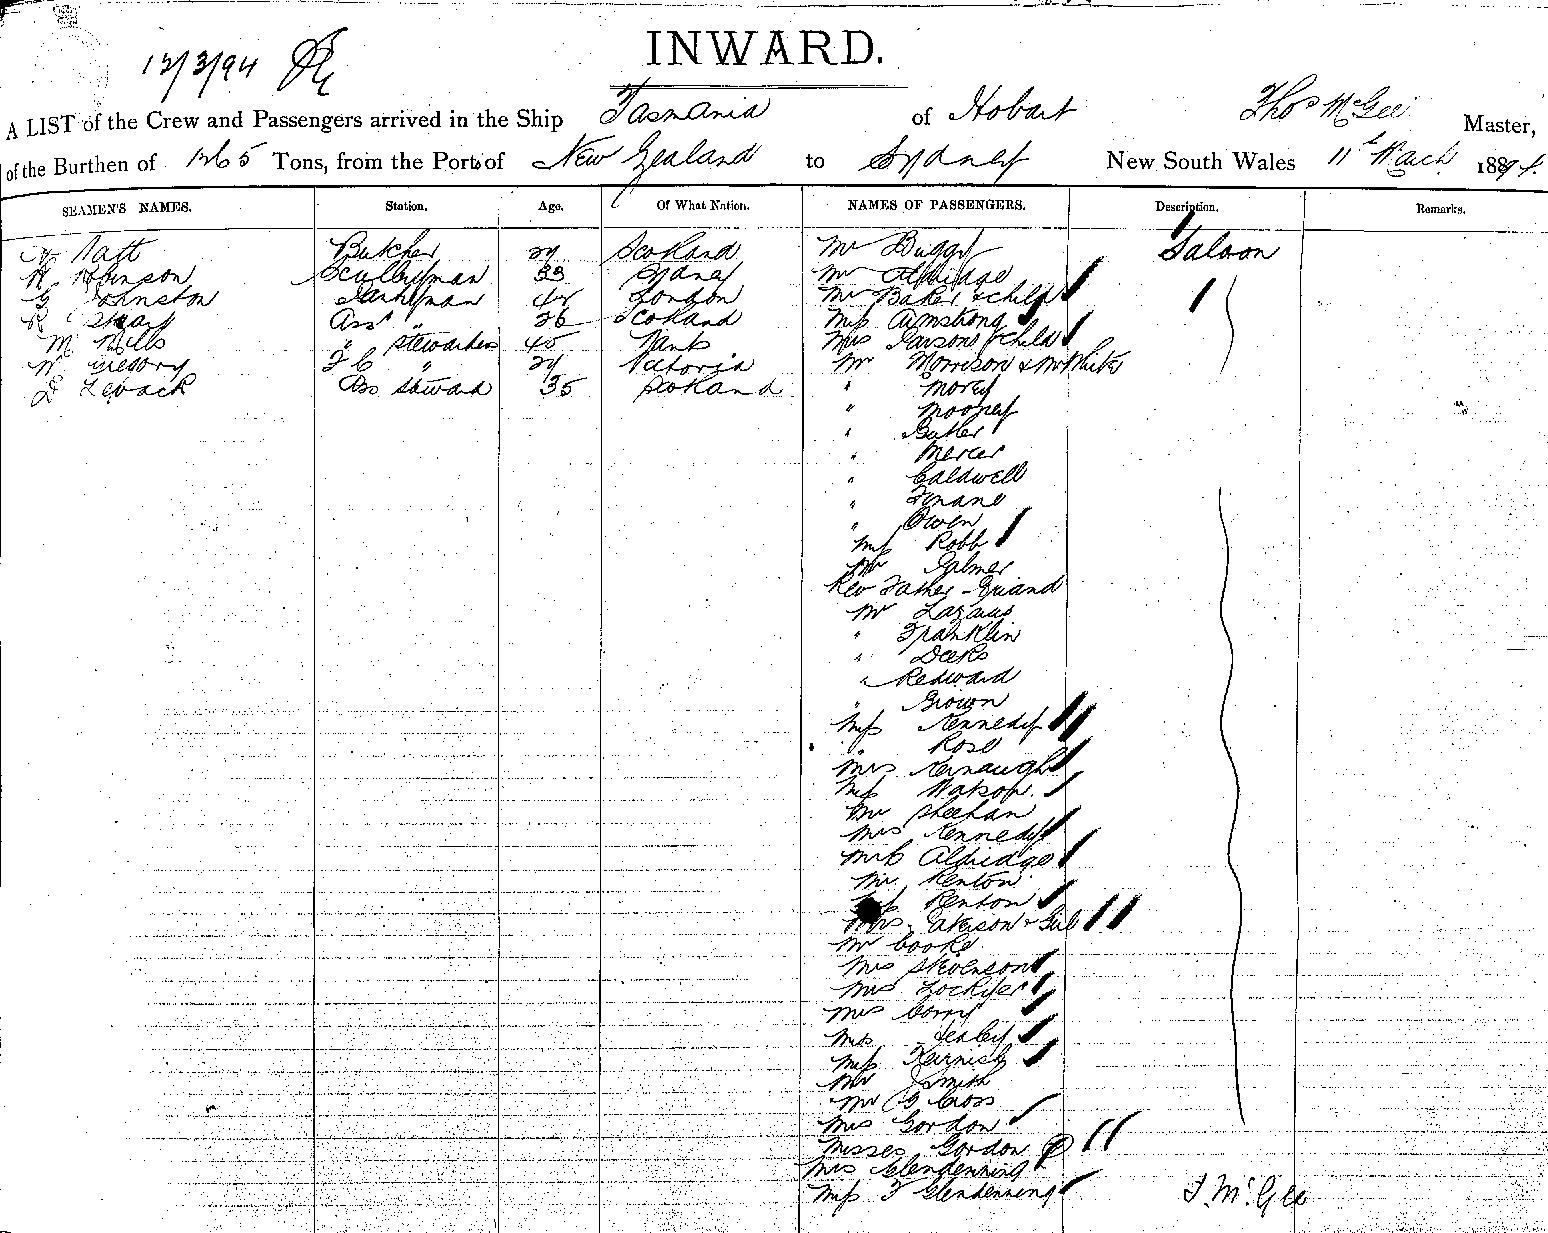 12/3/94
INWARD.
A LIST of the Crew and Passengers arrived in the Ship Tasmania of Hobart Thos McGee Master,
of the Burthen of 1265 Tons, from the Port of New Zealand to Sydney New South Wales 11th March 1894.
SEAMEN'S NAMES. Station. Age. Of What Nation. NAMES OF PASSENGERS. Description. Remarks.
Natt Butcher 24 Scotland Mr Saloon
Robinson Scullyman 33 Sydney Mr Aldridge
G Johnston Pantryman 42 London Mrs Baker & child
Sharp Asst " 26 Scotland Miss Armstrong
M Mills " Stewardess 45 Hants Mrs Parsons & child
W Gregory F C " 24 Victoria Mr Morrison & Mr White
D Levack Ass Steward 35 Scotland " Morey
" Mooney
" Butler
" Mercer
" Caldwell
" Finane
" Owen
Miss Robb
Mr Palmer
Rev Father Briand
Mr Lazarus
" Franklin
" Deeks
" Redward
" Brown
Miss Kennedy
" Rose
Mrs Kernaugh
Miss Watson
Mr Sheehan
Mrs Kennedy
Miss Aldridge
Mr Renton
Miss Renton
Mrs Paterson &
Mr Cooke
Mrs Stevenson
Mrs Lockyer
Mrs Corry
Miss Sealey
Miss
Mr Smith
Mr G Cross
Mrs Gordon
Misses Gordon (2)
Mrs Glendenning
Miss F Glendenning
T. McGee